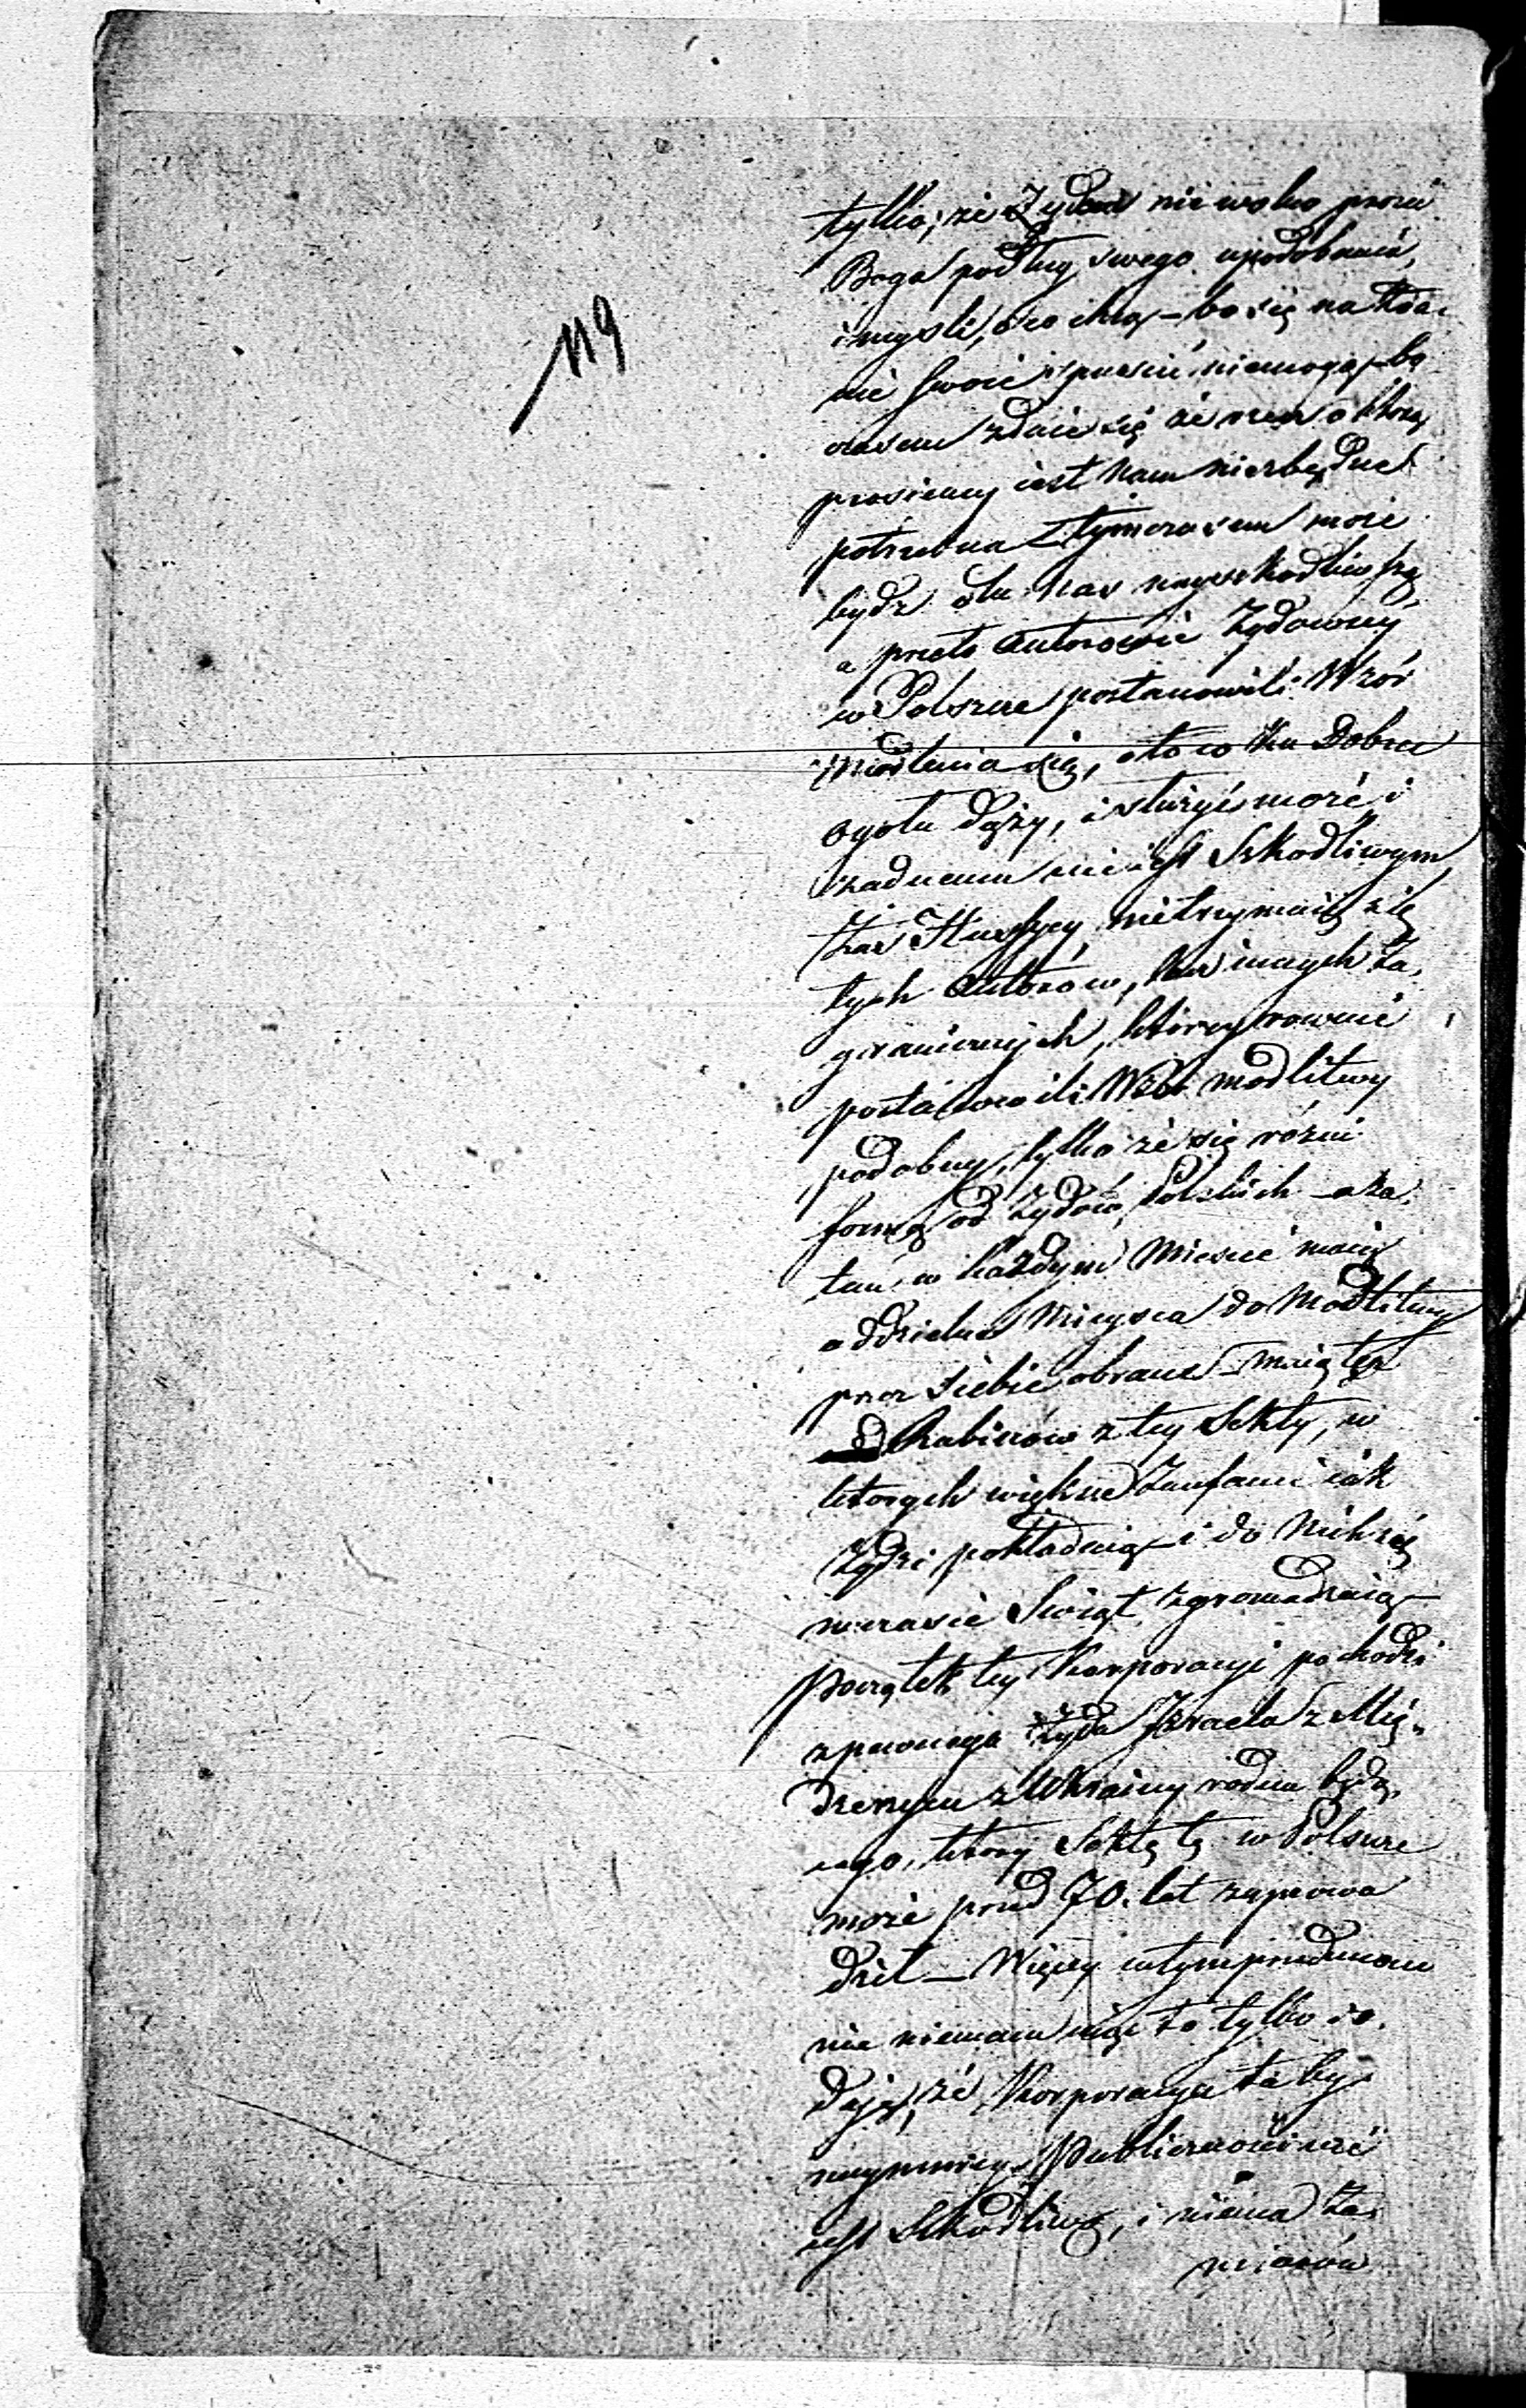 119
tylko, że Żydom nie wolno prosić
Boga podług swego upodobania,
i mysli, o co chcą – bo się na zda-
nie swoie spuscić niemogą, bo
czasem zdaie się że rzecz o którą
prosiemy iest nam niezbędnie
potrzebna – tymczasem może
bydz dla nas nayszkodliwszą
a przeto Autorowie Żydowscy
w Polszcze postanowili Wzór
modlenia się, oto co ku Dobru
ogołu dąży, i służyć może i
żadnemu nie iest Szkodliwym,
zas Hussyci nietrzymaią się
tych Autorów, lecz innych Za-
granicznych, którzy rownie
postanowili Wzór modlitwy
podobny, tylko że się różni
formą od Żydów Polskich – a za-
tem w każdym Miescie maią
oddzielne Mieysca do Modlitwy
przez siebie obrane – maią też
Rabinów z tey Sekty, w
ktorych większe Zaufanie iak
Żydzi pokładaią – i do Nich się
w czasie Swiąt zgromadzaią –
Początek tey Korporacyi pochodzi
z pewnego Żyda Izraela z Mię-
dzerzyca z Ukrainy rodem będą-
cego, ktory Sektę tę w Polszcze
może przed 70. lat zaprowa
dził – Więcey w tym przedmiocie
nie niemam więc to tylko do-
daję, że Korporacya ta by-
naymniey Publicznosci nie
iest Szkodliwą, i niema Za-
miarów